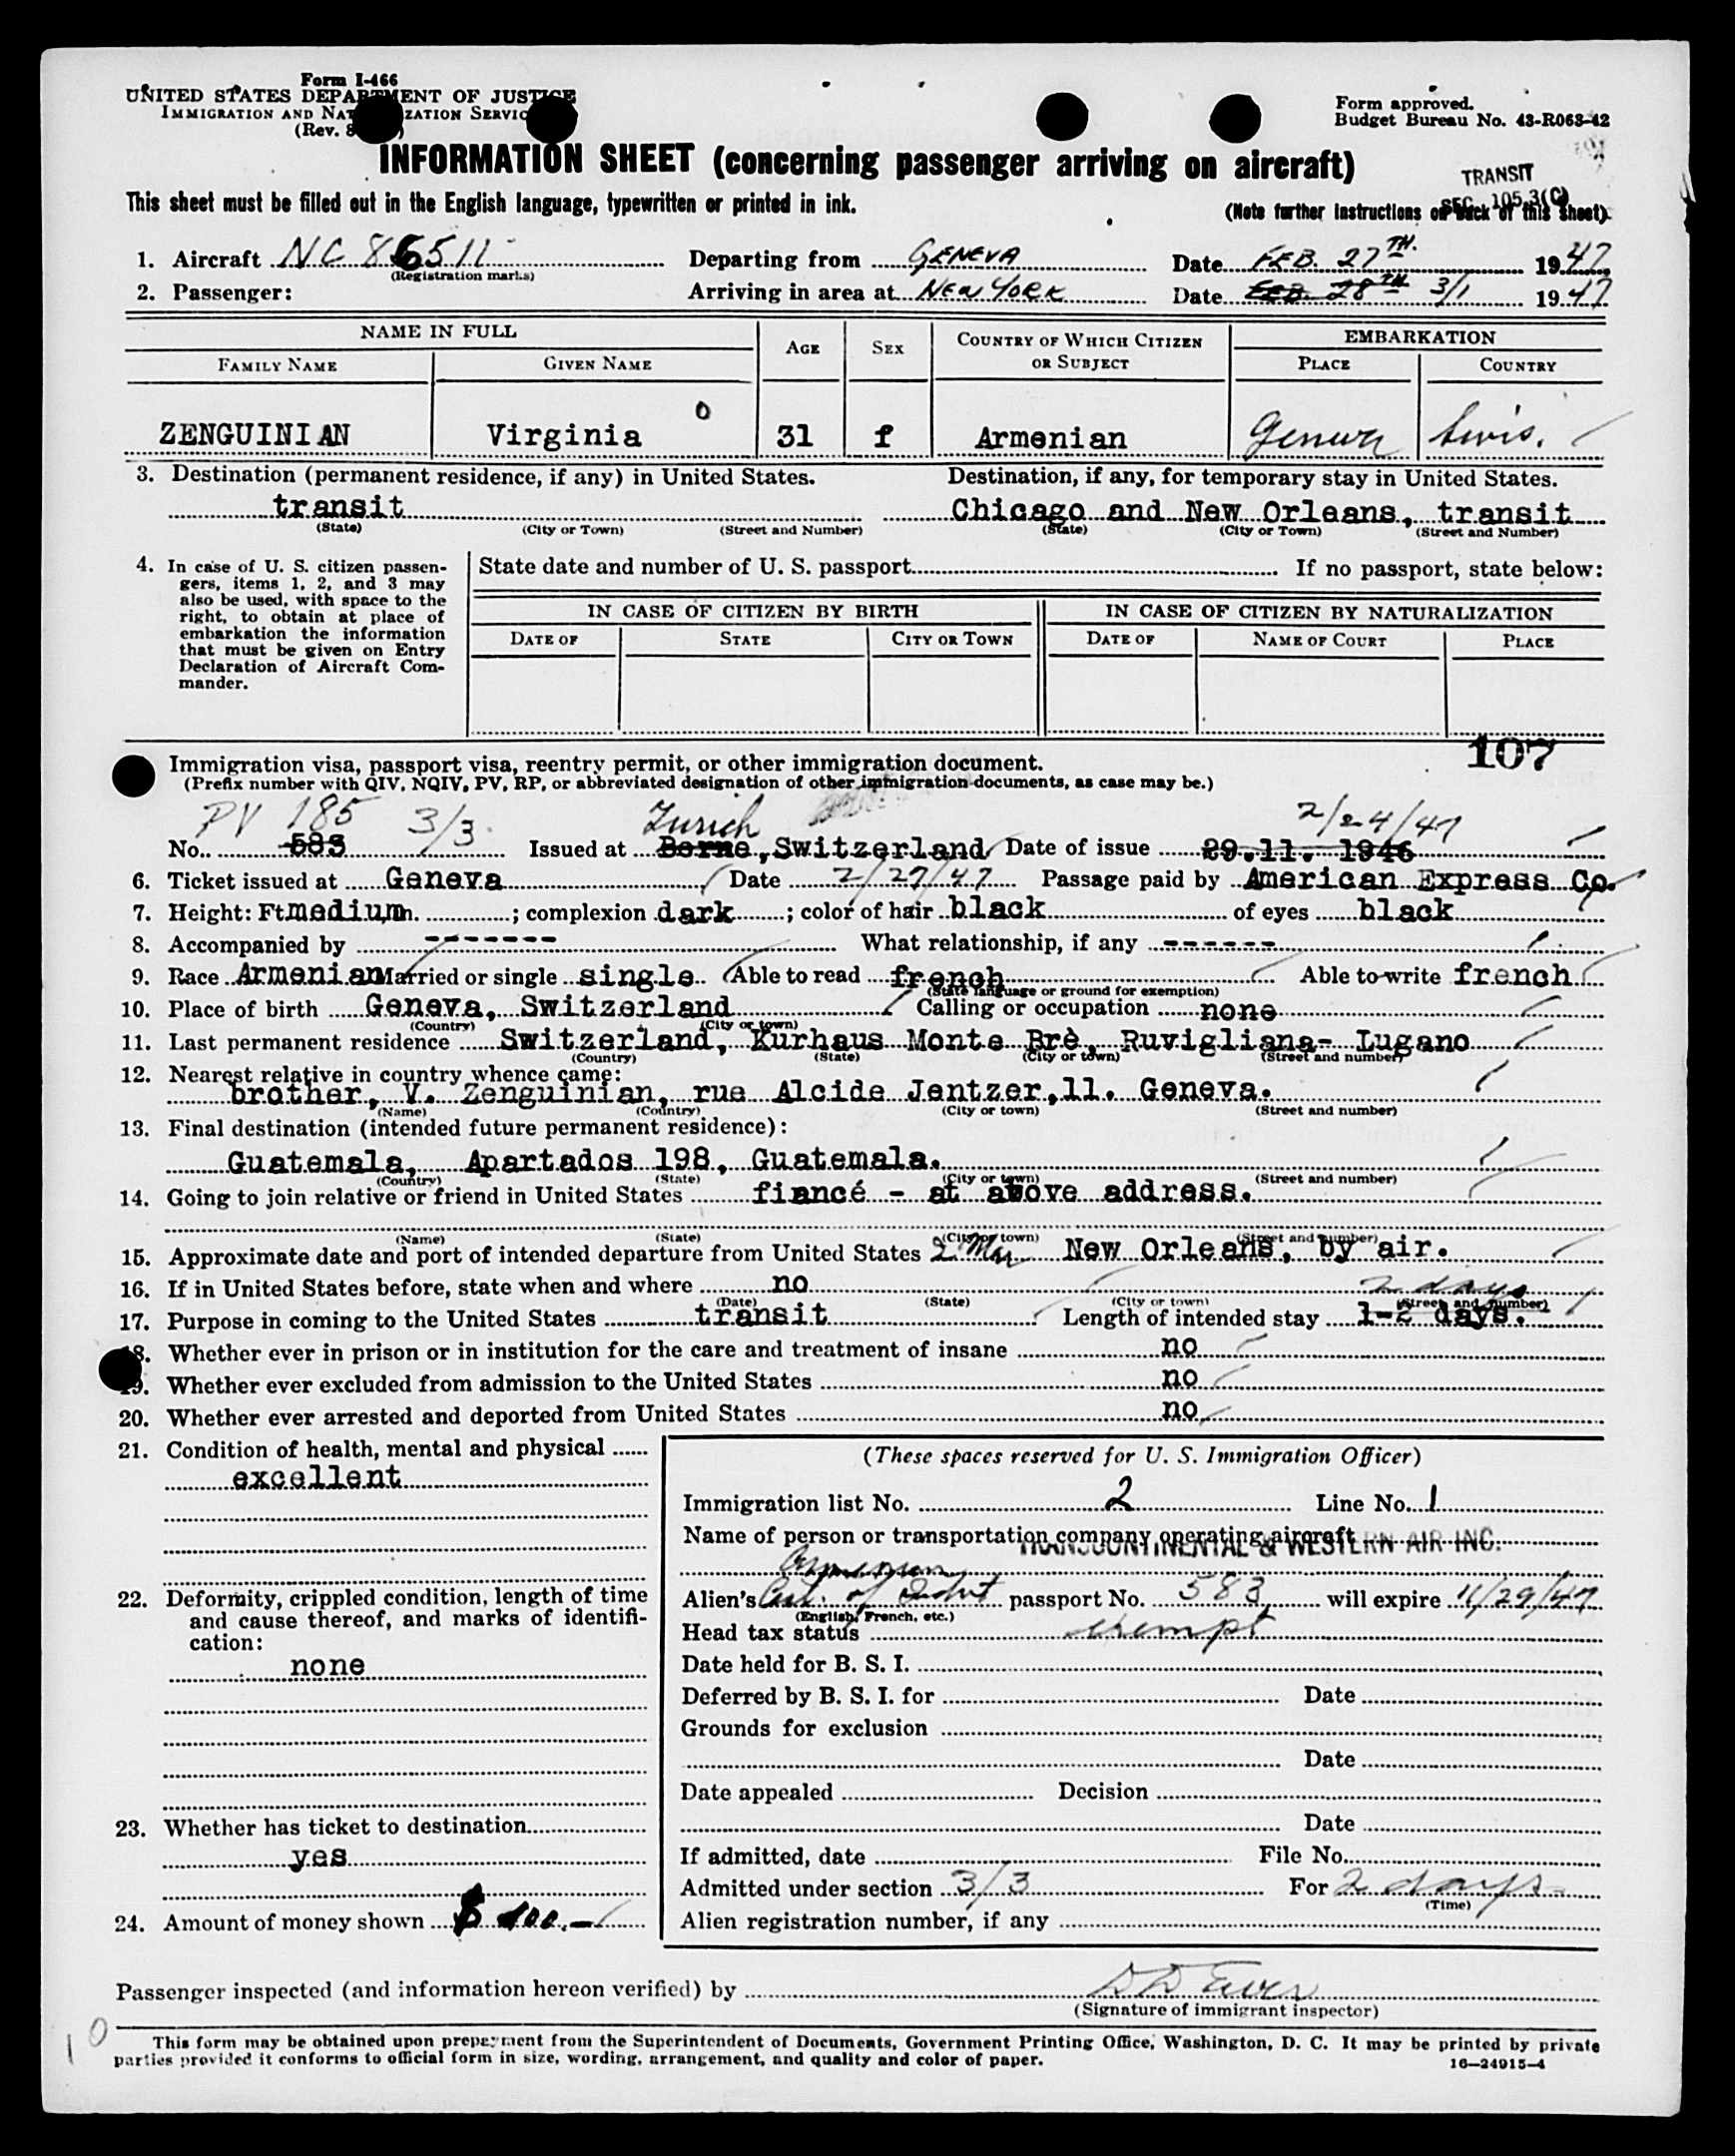 Form I-466
UNITED STATES DEPARTMENT OF JUSTICE
IMMIGRATION AND NAT ZATION SERVIC
(Rev. 8 )
Form approved.
Budget Bureau No. 43-R063-42
INFORMATION SHEET (concerning passenger arriving on aircraft)
TRANSIT
SEC. 105.3(C)
This sheet must be filled out in the English language, typewritten or printed in ink.
(Note further instructions on back of this sheet).
1. Aircraft NC 86511 Departing from GENEVA Date FEB. 27TH. 1947
(Registration marks)
2. Passenger: Arriving in area at NEW YORK Date FEB. 28TH 3/1 1947
NAME IN FULL AGE SEX COUNTRY OF WHICH CITIZEN OR SUBJECT EMBARKATION
FAMILY NAME GIVEN NAME PLACE COUNTRY
ZENGUINIAN Virginia 0 31 f Armenian Geneva Swis.
3. Destination (permanent residence, if any) in United States. Destination, if any, for temporary stay in United States.
transit Chicago and New Orleans, transit
(State) (City or Town) (Street and Number) (State) (City or Town) (Street and Number)
4. In case of U. S. citizen passen-
gers, items 1, 2, and 3 may
also be used, with space to the
right, to obtain at place of
embarkation the information
that must be given on Entry
Declaration of Aircraft Com-
mander.
State date and number of U. S. passport If no passport, state below:
IN CASE OF CITIZEN BY BIRTH IN CASE OF CITIZEN BY NATURALIZATION
DATE OF STATE CITY OR TOWN DATE OF NAME OF COURT PLACE
107
Immigration visa, passport visa, reentry permit, or other immigration document.
(Prefix number with QIV, NQIV, PV, RP, or abbreviated designation of other immigration documents, as case may be.)
PV 185 3/3 Zurich 2/24/47
No. 583 Issued at Berne, Switzerland Date of issue 29.11. 1946
6. Ticket issued at Geneva Date 2/27/47 Passage paid by American Express Co.
7. Height: Ft. medium In. ; complexion dark ; color of hair black of eyes black
8. Accompanied by ------- What relationship, if any ------
9. Race Armenian Married or single single Able to read french Able to write french
(State language or ground for exemption)
10. Place of birth Geneva, Switzerland Calling or occupation none
(Country) (City or town)
11. Last permanent residence Switzerland, Kurhaus Monte Brè, Ruvigliana- Lugano
(Country) (State) (City or town) (Street and number)
12. Nearest relative in country whence came:
brother, V. Zenguinian, rue Alcide Jentzer,11. Geneva.
(Name) (Country) (City or town) (Street and number)
13. Final destination (intended future permanent residence):
Guatemala, Apartados 198, Guatemala.
(Country) (State) (City or town) (Street and number)
14. Going to join relative or friend in United States fiancé - at above address.
(Name) (State) (City or town) (Street and number)
15. Approximate date and port of intended departure from United States 2 Mar New Orleans, by air.
16. If in United States before, state when and where no 2 days
(Date) (State) (City or town) (Street and number)
17. Purpose in coming to the United States transit Length of intended stay 1-2 days.
18. Whether ever in prison or in institution for the care and treatment of insane no
19. Whether ever excluded from admission to the United States no
20. Whether ever arrested and deported from United States no
21. Condition of health, mental and physical
excellent
22. Deformity, crippled condition, length of time
and cause thereof, and marks of identifi-
cation:
none
23. Whether has ticket to destination
yes
24. Amount of money shown $ 100.-
(These spaces reserved for U. S. Immigration Officer)
Immigration list No. 2 Line No. 1
Name of person or transportation company operating aircraft
TRANSCONTINENTAL & WESTERN AIR INC.
Armenian
Alien's Cert. of Ident passport No. 583 will expire 11/29/47
(English, French, etc.)
Head tax status exempt
Date held for B. S. I.
Deferred by B. S. I. for Date
Grounds for exclusion
Date
Date appealed Decision
Date
If admitted, date File No.
Admitted under section 3/3 For 2 days
(Time)
Alien registration number, if any
Passenger inspected (and information hereon verified) by
(Signature of immigrant inspector)
10
This form may be obtained upon prepayment from the Superintendent of Documents, Government Printing Office, Washington, D. C. It may be printed by private
parties provided it conforms to official form in size, wording, arrangement, and quality and color of paper.
16—24915-4